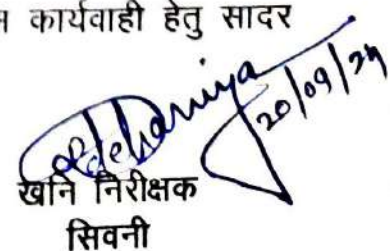 कार्यवाही हेतु सादर
20/09/24
खनि निरीक्षक
सिवनी